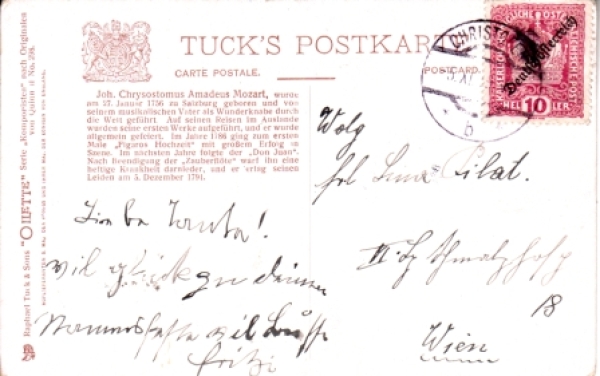 TUCK'S POSTKART
CARTE POSTALE.
POSTCARD.
Joh. Chrysostomus Amadeus Mozart, wurde
am 27. Januar 1756 zu Salzburg geboren und von
seinem musikalischen Vater als Wunderknabe durch
die Welt geführt. Auf seinen Reisen im Auslande
wurden seine ersten Werke aufgeführt, und er wurde
allgemein gefeiert. Im Jahre 1786 ging zum ersten
Male „Figaros Hochzeit" mit großem Erfolg in
Szene. Im nächsten Jahre folgte der „Don Juan".
Nach Beendigung der „Zauberflöte" warf ihn eine
heftige Krankheit darnieder, und er erlag seinen
Leiden am 5. Dezember 1791.
Raphael Tuck & Sons' "OILETTE" Serie „Komponisten" nach Originalen
No. 298.
CHRIST
b
Deutschösterreich
HEL 10 LER
Wolg
Frl. Pilat.
III.
18
Wien
Liebe Tante!
viel glück zu deinem
Fritzi